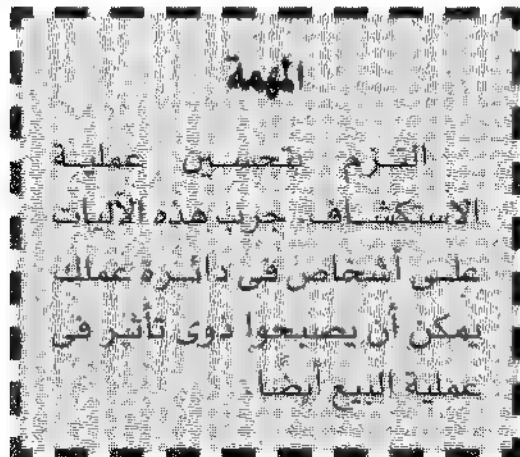 المهمة
التزم بتحسين عملية
الاستكشاف. جرب هذه الآليات
على أشخاص فى دائرة عملك
يمكن أن يصبحوا ذوى تأثير فى
عملية البيع أيضا.